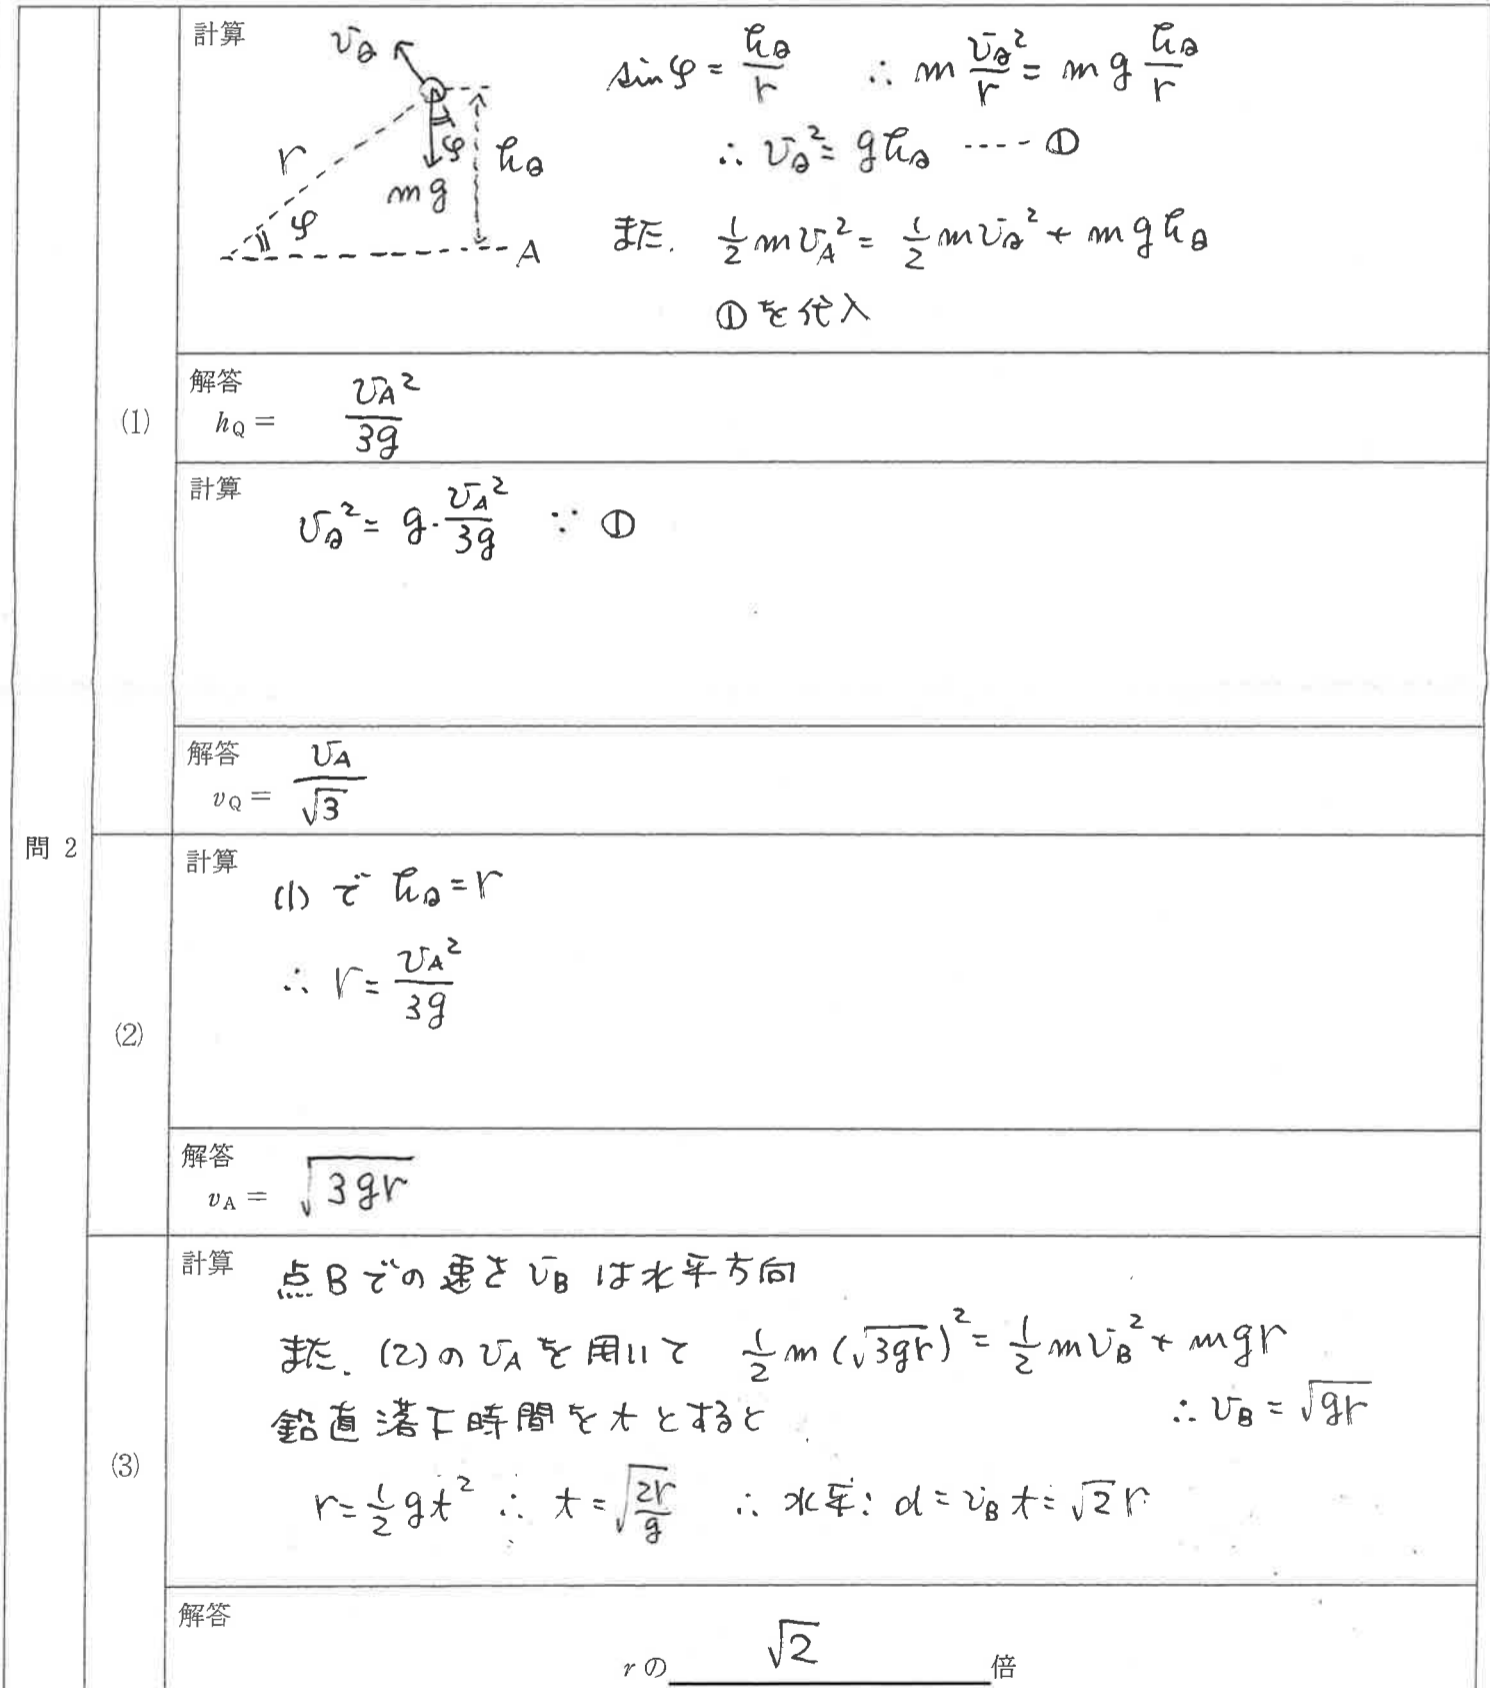 問 2
(1)
計算
v_Q
r
φ
mg
φ
h_Q
A
sinφ = h_Q/r ∴ m v_Q²/r = mg h_Q/r
∴ v_Q² = g h_Q ---- ①
また. 1/2 m v_A² = 1/2 m v_Q² + m g h_Q
①を代入
解答
h_Q = v_A²/3g
計算
v_Q² = g・v_A²/3g ∵ ①
解答
v_Q = v_A/√3
(2)
計算
(1) で h_Q = r
∴ r = v_A²/3g
解答
v_A = √(3gr)
(3)
計算
点Bでの速さ v_B は水平方向
また. (2)の v_A を用いて 1/2 m (√(3gr))² = 1/2 m v_B² + mgr
∴ v_B = √(gr)
鉛直落下時間を t とすると
r = 1/2 g t² ∴ t = √(2r/g) ∴ 水平: d = v_B t = √2 r
解答
r の √2 倍